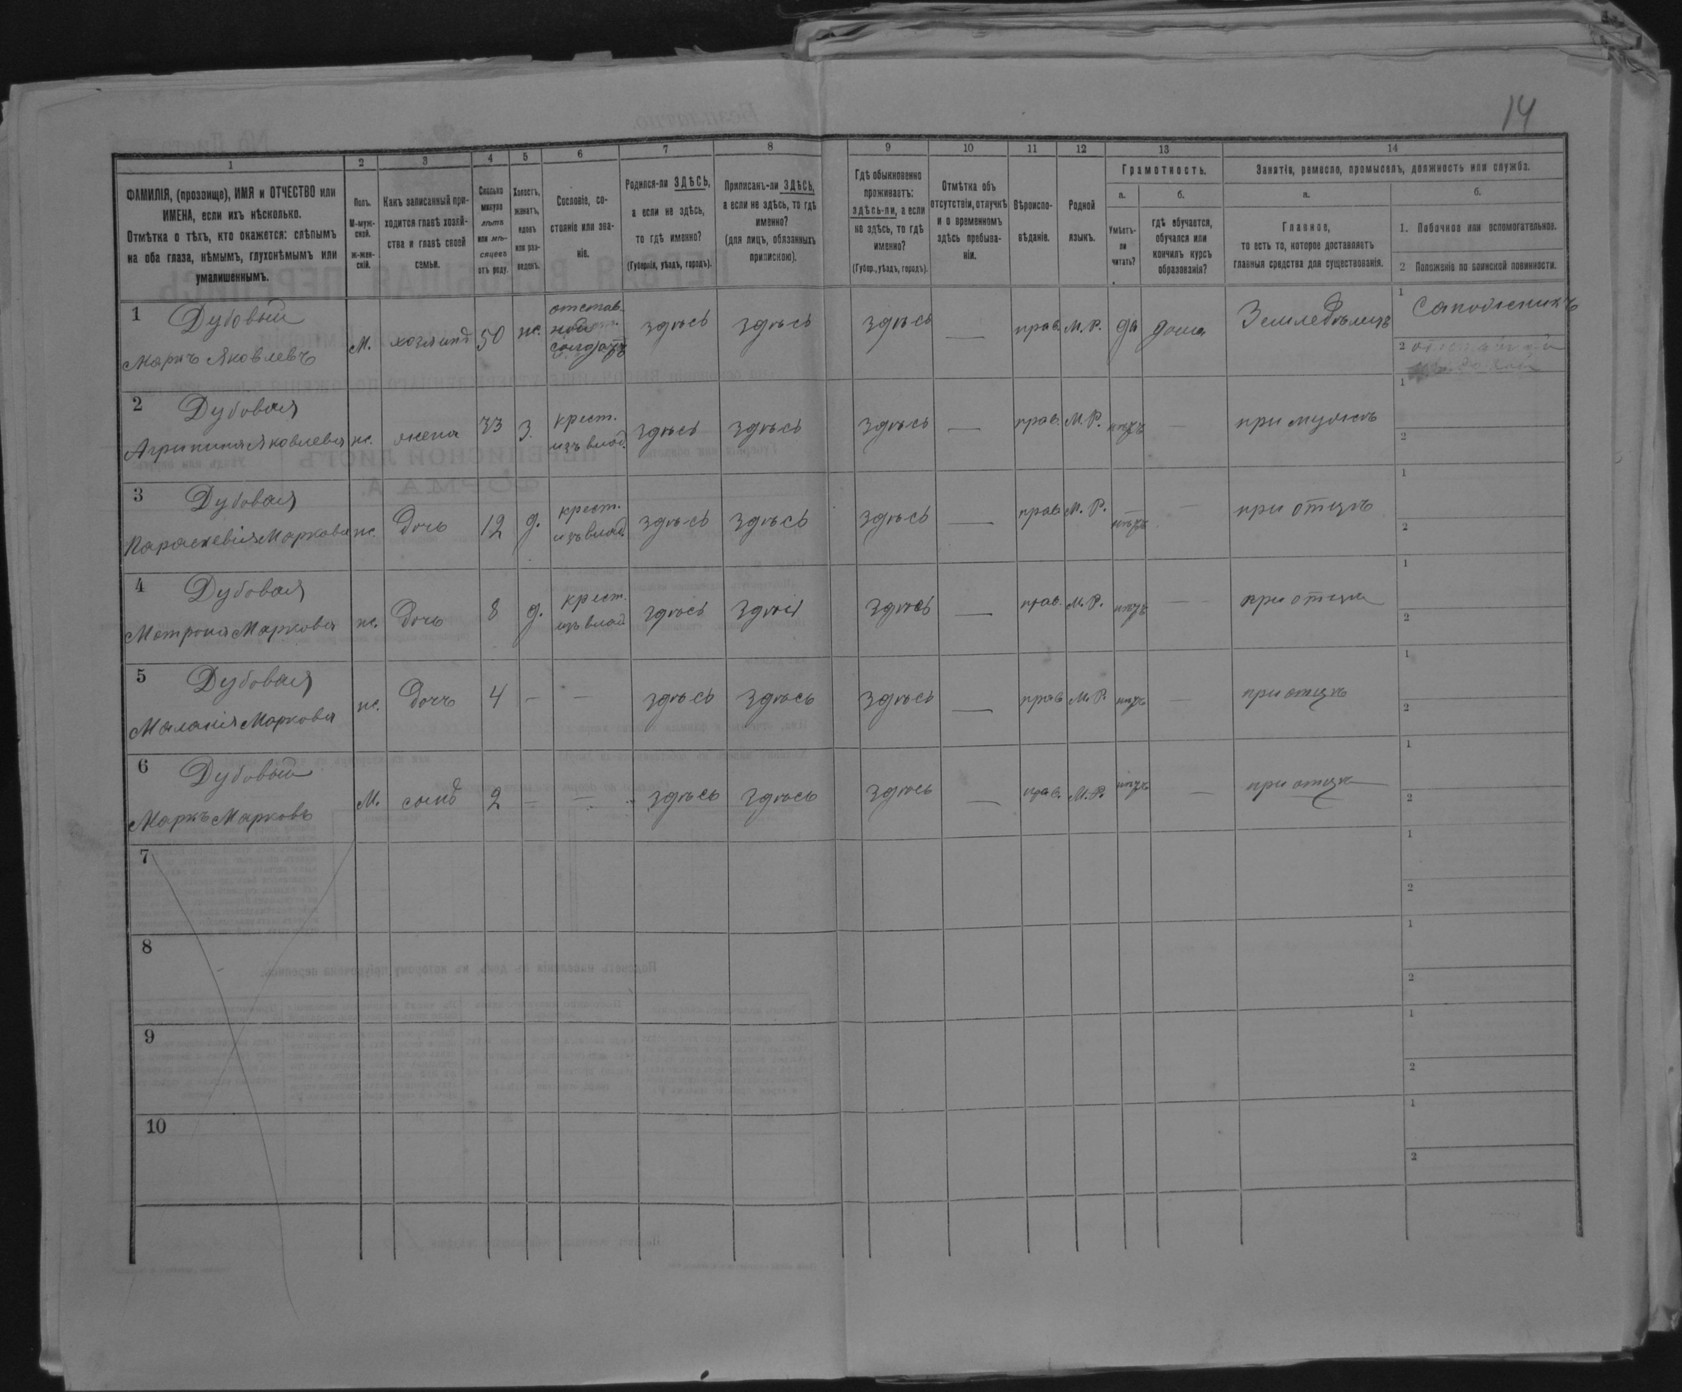 14
1 2 3 4 5 6 7 8 9 10 11 12 13 14
ФАМИЛІЯ, (прозвище), ИМЯ и ОТЧЕСТВО или
ИМЕНА, если ихъ нѣсколько.
Отмѣтка о тѣхъ, кто окажется: слѣпымъ
на оба глаза, нѣмымъ, глухонѣмымъ или
умалишеннымъ.
Полъ.
М-муж-
ской.
ж-жен-
скій.
Какъ записанный при-
ходится главѣ хозяй-
ства и главѣ своей
семьи.
Сколько
минуло
лѣтъ
или мѣ-
сяцевъ
отъ роду.
Холостъ,
женатъ,
вдовъ
или раз-
веденъ.
Сословіе, со-
стояніе или зва-
ніе.
Родился-ли ЗДѢСЬ,
а если не здѣсь,
то гдѣ именно?
(Губернія, уѣздъ, городъ).
Приписанъ-ли ЗДѢСЬ,
а если не здѣсь, то гдѣ
именно?
(для лицъ, обязанныхъ
припискою).
Гдѣ обыкновенно
проживаетъ:
здѣсь-ли, а если
не здѣсь, то гдѣ
именно?
(Губер., уѣздъ, городъ).
Отмѣтка объ
отсутствіи, отлучкѣ
и о временномъ
здѣсь пребыва-
ніи.
Вѣроиспо-
вѣданіе.
Родной
языкъ.
Грамотность.
а.
Умѣетъ-
ли
читать?
б.
гдѣ обучается,
обучался или
кончилъ курсъ
образованія?
Занятіе, ремесло, промыселъ, должность или служба.
а.
Главное,
то есть то, которое доставляетъ
главныя средства для существованія.
б.
1. Побочное или вспомогательное.
2 Положеніе по воинской повинности.
1 Дубовый
Маркъ Яковлевъ М. хозяинъ 50 ж. отстав-
ной
солдатъ здѣсь здѣсь здѣсь — прав. М. Р. да дома Земледѣлецъ 1 Сапожникъ
2
2 Дубовая
Агрипина Яковлева ж. жена 33 з. крест.
изъ влад. здѣсь здѣсь здѣсь — прав. М. Р. нѣтъ — при мужѣ 1
2
3 Дубовая
Параскевія Маркова ж. дочь 12 д. крест.
изъ влад. здѣсь здѣсь здѣсь — прав. М. Р. нѣтъ — при отцѣ 1
2
4 Дубовая
Метрона Маркова ж. дочь 8 д. крест.
изъ влад. здѣсь здѣсь здѣсь — прав. М. Р. нѣтъ — при отцѣ 1
2
5 Дубовая
Маланія Маркова ж. дочь 4 — — здѣсь здѣсь здѣсь — прав. М. Р. нѣтъ — при отцѣ 1
2
6 Дубовый
Маркъ Марковъ М. сынъ 2 — — здѣсь здѣсь здѣсь — прав. М. Р. нѣтъ — при отцѣ 1
2
7 1
2
8 1
2
9 1
2
10 1
2